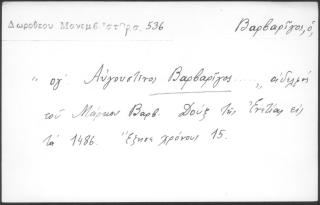 Δωροθεου Μονεμβ στορσ. 536
Βαρβαρῖγος, ὁ,
„ ογ' Αὐγουστῖνος Βαρβαρῖγος ..... „ ἀδελφὸς
τοῦ Μάρκου Βαρβ. Δοὺξ τῆς Ἑνετίας εἰς
τὰ 1486. Ἔζησε χρόνους 15.